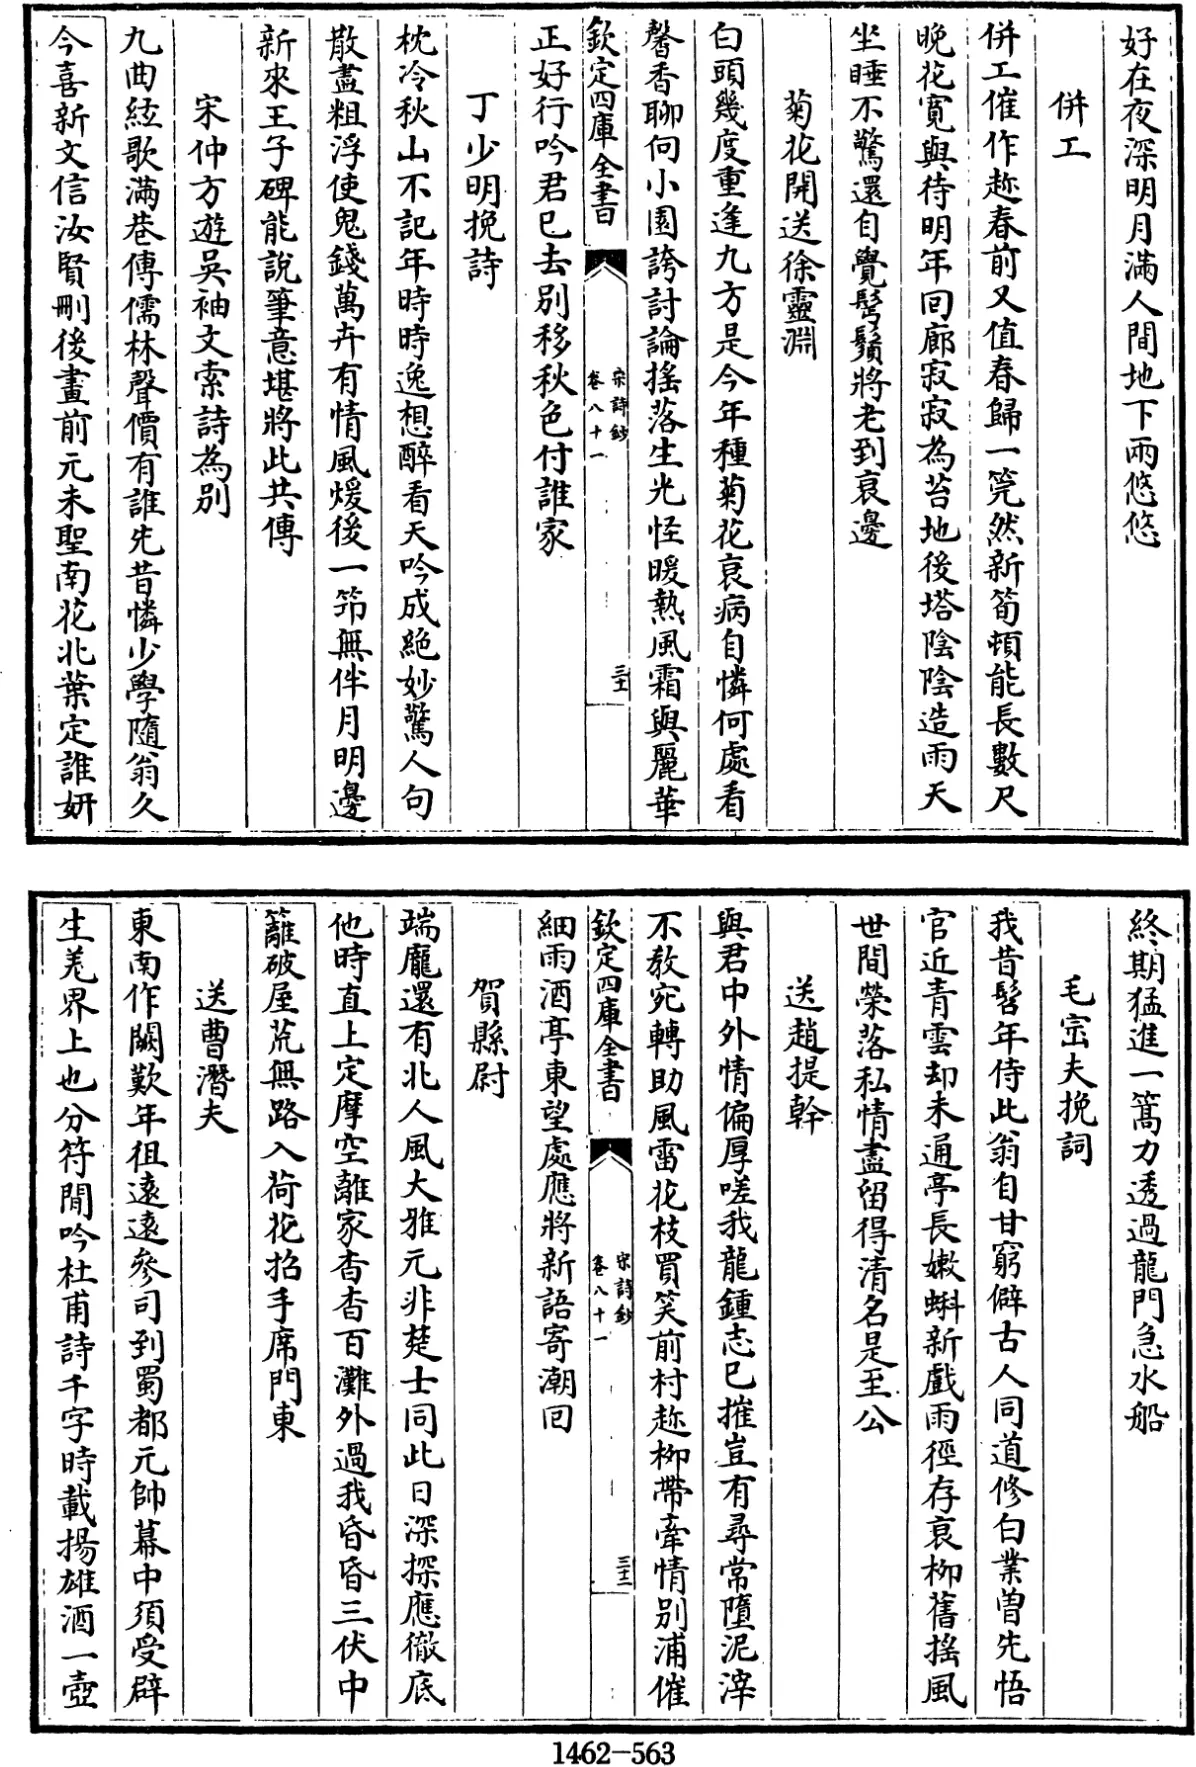 好在夜深明月滿人間地下兩悠悠
併工
併工催作趂春前又值春歸一筦然新筍頓能長數尺
晚花寛與待明年回廊寂寂為苔地後塔陰陰造雨天
坐睡不驚還自覺髩鬚將老到衰邊
菊花開送徐靈淵
白頭幾度重逢九方是今年種菊花衰病自憐何處看
馨香聊向小園誇討論揺落生光怪暖熱風霜與麗華
欽定四庫全書
宋詩鈔
卷八十一
三十一
正好行吟君已去别移秋色付誰家
丁少明挽詩
枕冷秋山不記年時時逸想醉看天吟成絶妙驚人句
散盡粗浮使鬼錢萬卉有情風煖後一笻無伴月明邊
新來王子碑能說筆意堪將此共傳
宋仲方遊吳袖文索詩為别
九曲絃歌滿巷傳儒林聲價有誰先昔憐少學隨翁久
今喜新文信汝賢刪後畫前元未聖南花北葉定誰妍
終期猛進一篙力透過龍門急水船
毛宻夫挽詞
我昔髫年侍此翁自甘窮僻古人同道修白業曽先悟
官近青雲却未通亭長嫩蝌新戲雨徑存衰栁舊揺風
世間榮落私情盡留得清名是至公
送趙提幹
與君中外情偏厚嗟我龍鍾志已摧豈有尋常墮泥滓
不教宛轉助風雷花枝買笑前村趂栁帶牽情别浦催
欽定四庫全書
宋詩鈔
卷八十一
三十二
細雨酒亭東望處應將新語寄潮回
賀縣尉
端龎還有北人風大雅元非楚士同此日深探應徹底
他時直上定摩空離家杳杳百灘外過我昏昏三伏中
籬破屋荒無路入荷花招手席門東
送曹潛夫
東南作闕歎年徂逺逺參司到蜀都元帥幕中須受辟
生羌界上也分符閒吟杜甫詩千字時載揚雄酒一壺
1462—563